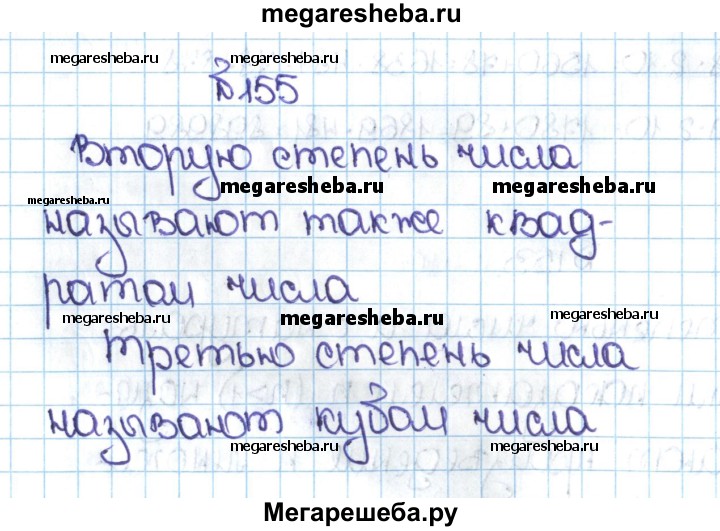 megaresheba.ru
megaresheba.ru megaresheba.ru megaresheba.ru
№155
Вторую степень числа
megaresheba.ru megaresheba.ru megaresheba.ru
называют также квад-
ратом числа
megaresheba.ru megaresheba.ru megaresheba.ru
Третью степень числа
называют кубом числа
megaresheba.ru megaresheba.ru
Мегарешеба.ру